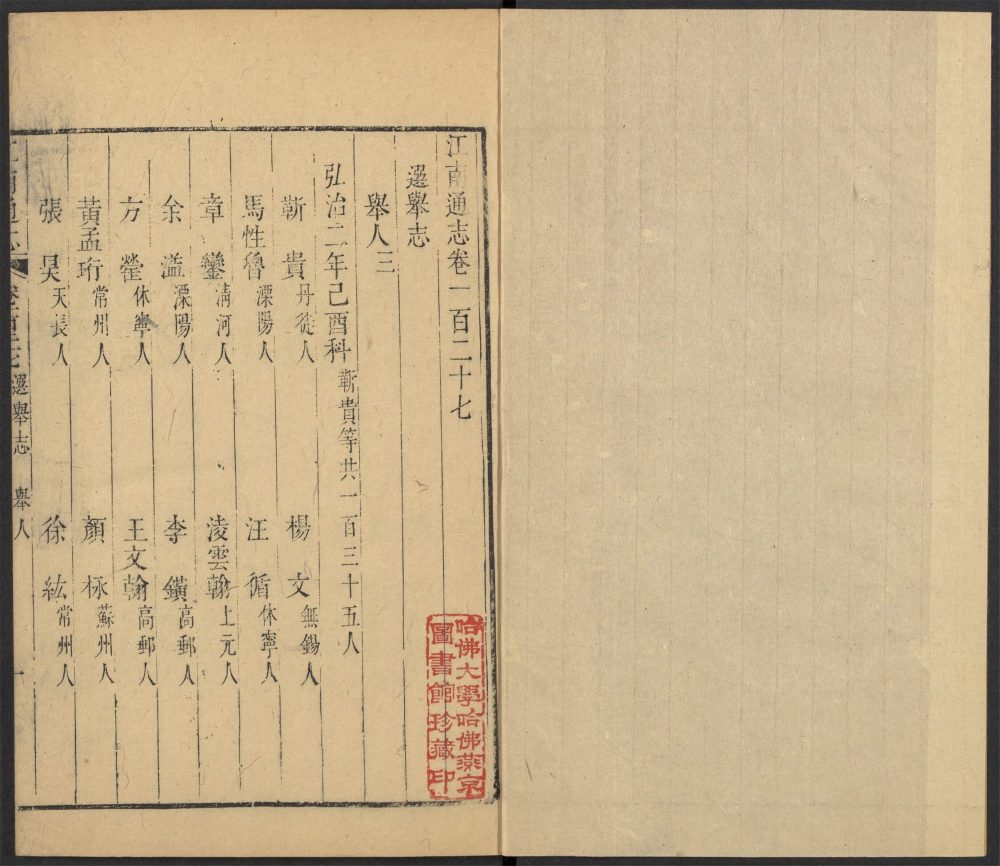 江南通志卷一百二十七
選舉志
舉人三
弘治二年己酉科靳貴等共一百三十五人
靳貴丹徒人 楊文無錫人
馬性魯溧陽人 汪循休寧人
章鑾清河人 淩雲翰上元人
余溢溧陽人 李鐄高郵人
方瑩休寧人 王文翰高郵人
黃孟珩常州人 顏𣏌蘇州人
張昊天長人 徐紘常州人
江南通志 卷一百二十七 選舉志 舉人 一
哈佛大學哈佛燕京
圖書館珍藏印